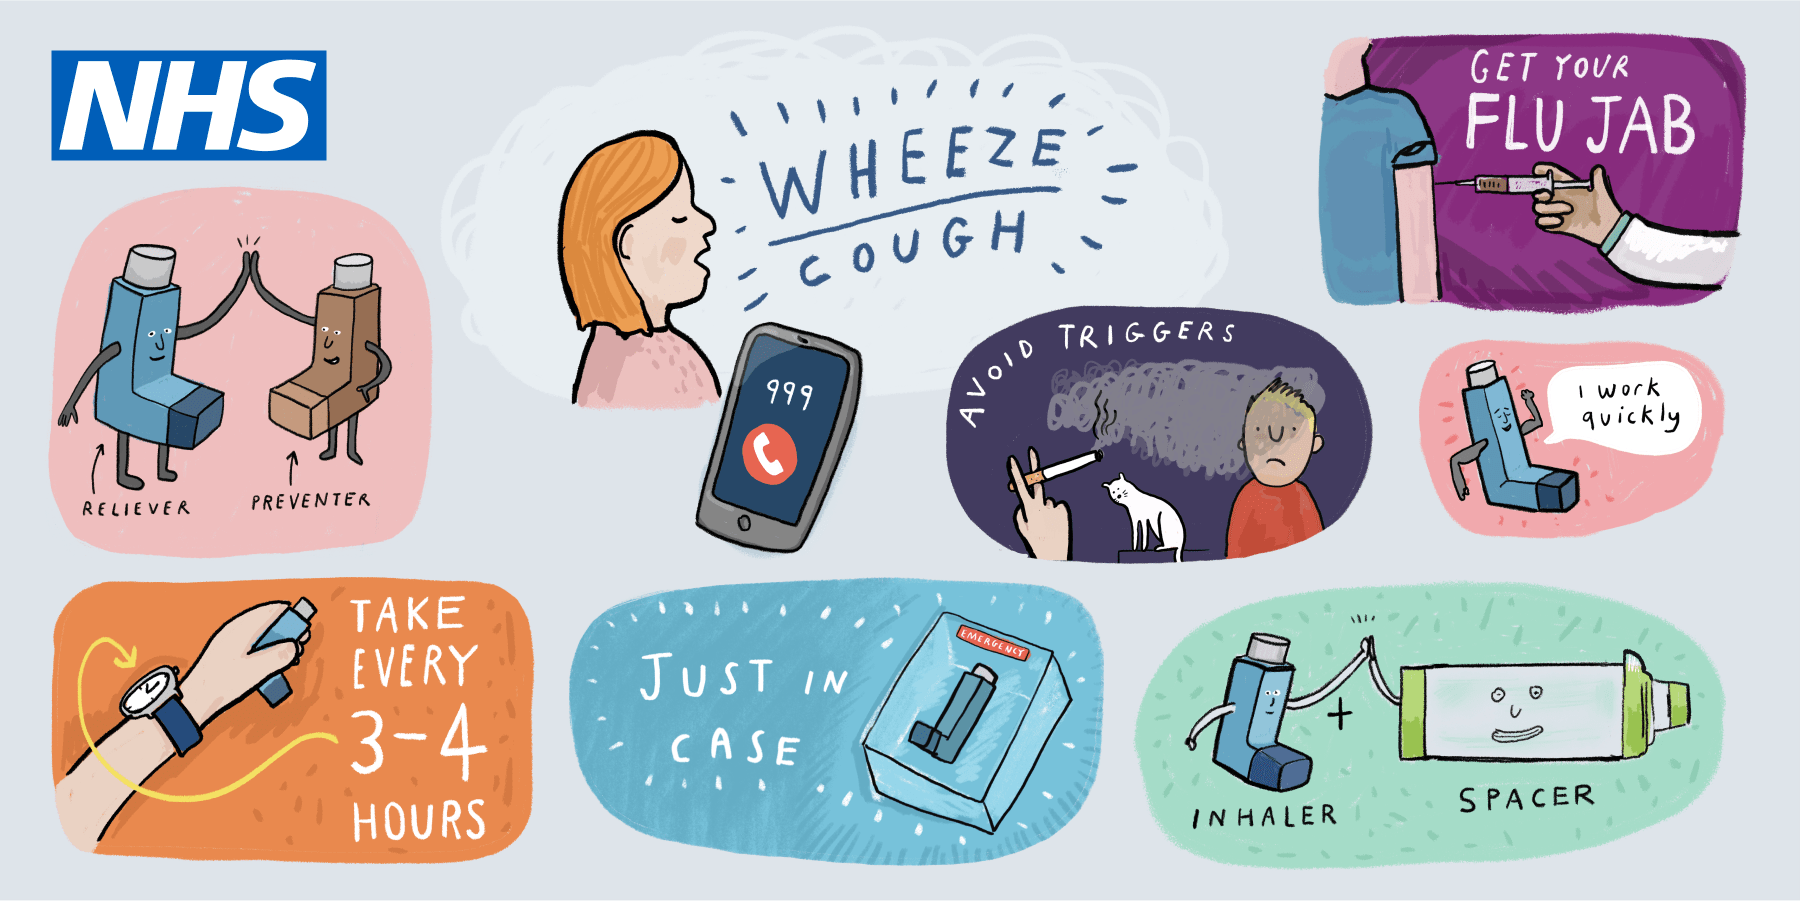 NHS
WHEEZE
COUGH
GET YOUR
FLU JAB
RELIEVER
PREVENTER
999
AVOID TRIGGERS
I WORK
quickly
TAKE
EVERY
3-4
HOURS
JUST IN
CASE
EMERGENCY
INHALER
+
SPACER